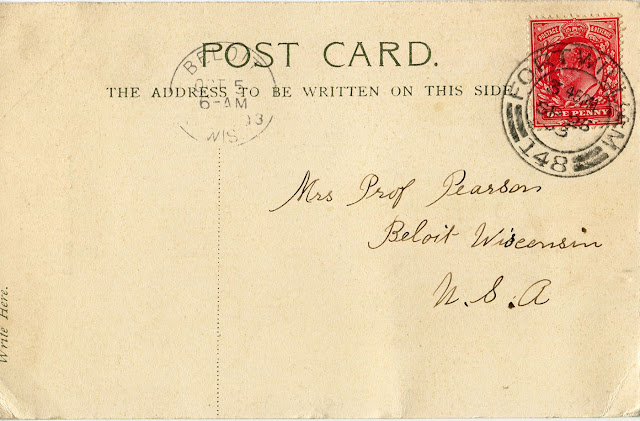 POST CARD.
THE ADDRESS TO BE WRITTEN ON THIS SIDE
BELOIT
OCT 5
6-AM
WIS
POSTAGE REVENUE
ONE PENNY
FORT WILLIAM
SE 26
03
148
Mrs Prof Pearson
Beloit Wisconsin
U.S.A
Write Here.